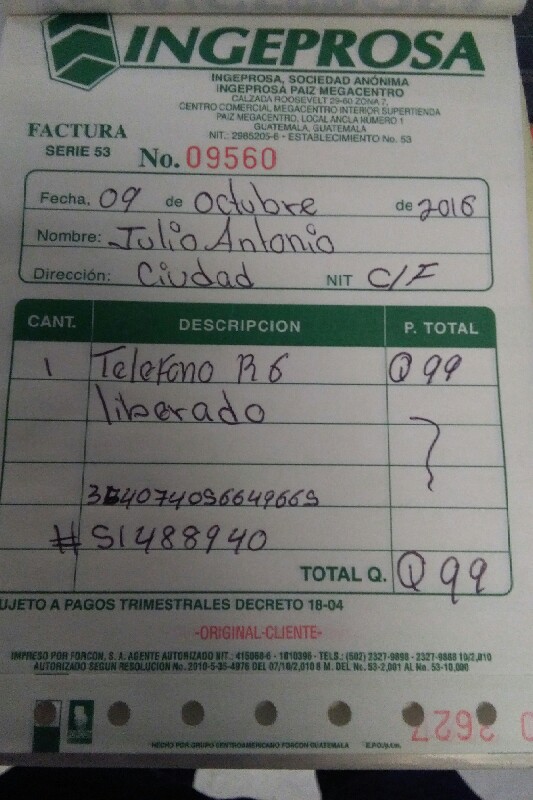 INGEPROSA
INGEPROSA, SOCIEDAD ANÓNIMA
INGEPROSA PAIZ MEGACENTRO
CALZADA ROOSEVELT 29-60 ZONA 7,
CENTRO COMERCIAL MEGACENTRO INTERIOR SUPERTIENDA
PAIZ MEGACENTRO, LOCAL ANCLA NUMERO 1
GUATEMALA, GUATEMALA
NIT.: 2985205-6 - ESTABLECIMIENTO No. 53
FACTURA
SERIE 53 No. 09560
Fecha, 09 de octubre de 2016
Nombre: Julio Antonio
Dirección: Ciudad NIT C/F
CANT. DESCRIPCION P. TOTAL
1 Telefono R6 Q 99
liberado
#51488940
TOTAL Q. Q 99
UJETO A PAGOS TRIMESTRALES DECRETO 18-04
-ORIGINAL-CLIENTE-
IMPRESO POR FORCON, S. A. AGENTE AUTORIZADO NIT.: 415068-6 - 1610396 - TELS.: (502) 2327-9898 - 2327-9888 10/2,010
AUTORIZADO SEGUN RESOLUCION No. 2010-5-35-4976 DEL 07/10/2,010 8 M. DEL No. 53-2,001 AL No. 53-10,000
HECHO POR GRUPO CENTROAMERICANO FORCON GUATEMALA
2627